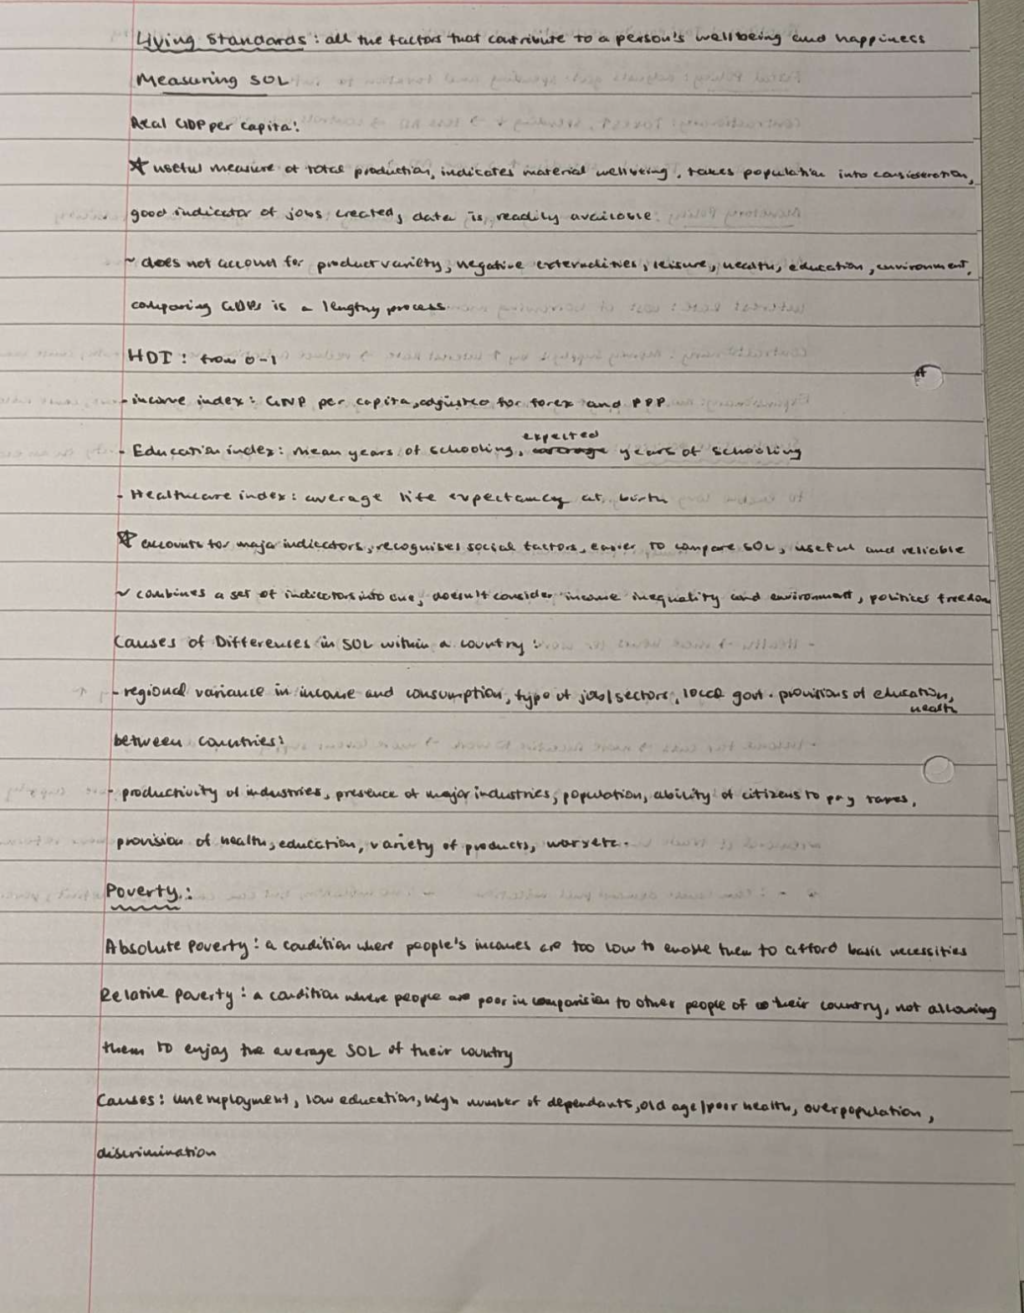 Living Standards : all the factors that contribute to a person's wellbeing and happiness
Measuring SOL
Real GDP per capita:
* useful measure of total production, indicates material wellbeing, takes population into consideration,
good indicator of jobs created, data is readily available
~ does not account for product variety, negative externalities, leisure, health, education, environment,
comparing GDPs is a lengthy process
HDI : from 0-1
- income index: GNP per capita, adjusted for forex and PPP
expected
- Education index: mean years of schooling, average years of schooling
- Healthcare index: average life expectancy at birth
* accounts for major indicators, recognises social factors, easier to compare SOL, useful and reliable
~ combines a set of indicators into one, doesn't consider income inequality and environment, political freedom
Causes of Differences in SOL within a country :
- regional variance in income and consumption, type of job/sectors, local govt. provisions of education,
health
between countries:
- productivity of industries, presence of major industries, population, ability of citizens to pay taxes,
provision of health, education, variety of products, war etc.
Poverty :
Absolute poverty : a condition where people's incomes are too low to enable them to afford basic necessities
Relative poverty : a condition where people are poor in comparision to other people of their country, not allowing
them to enjoy the average SOL of their country
Causes: unemployment, low education, high number of dependants, old age/poor health, overpopulation,
discrimination